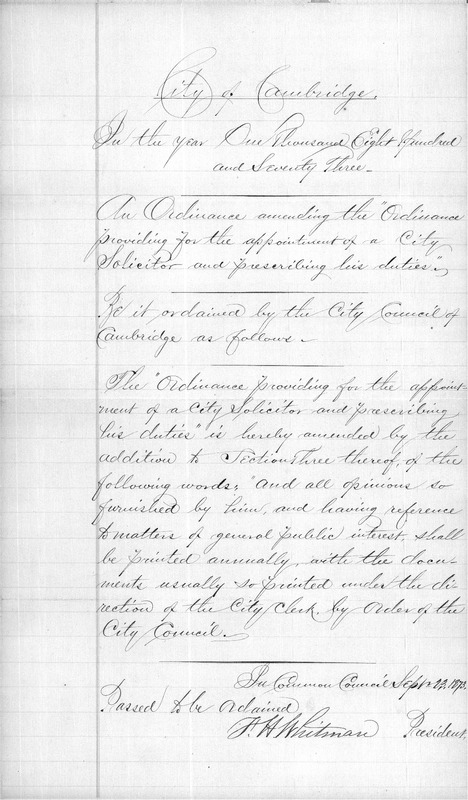 City of Cambridge.
In the year One Thousand Eight Hundred
and Seventy Three.
An Ordinance amending the "Ordinance
providing for the appointment of a City
Solicitor and prescribing his duties".
Be it ordained by the City Council of
Cambridge as follows.
The "Ordinance providing for the appoint-
ment of a City Solicitor and prescribing
his duties" is hereby amended by the
addition to Section Three thereof, of the
following words; "And all opinions so
furnished by him, and having reference
to matters of general public interest, shall
be printed annually, with the docu-
ments usually so printed under the di-
rection of the City Clerk, by order of the
City Council.
In Common Council Sept. 22, 1873.
Passed to be ordained
F. H. Whitman President.